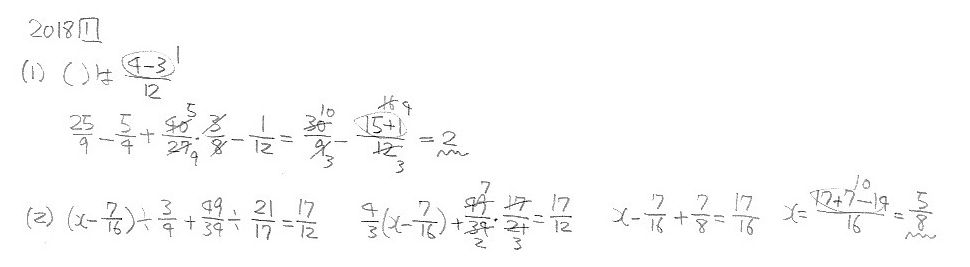 2018 1
(1) ( )は (4-3)/12 1
25/9 - 5/4 + 40/27 · 3/8 - 1/12 = 30/9 - (15+1)/12 = 2
(2) (x - 7/16) ÷ 3/4 + 49/34 ÷ 21/17 = 17/12   4/3(x - 7/16) + 49/34 · 17/21 = 17/12   x - 7/16 + 7/8 = 17/16   x = (17+7-14)/16 = 5/8